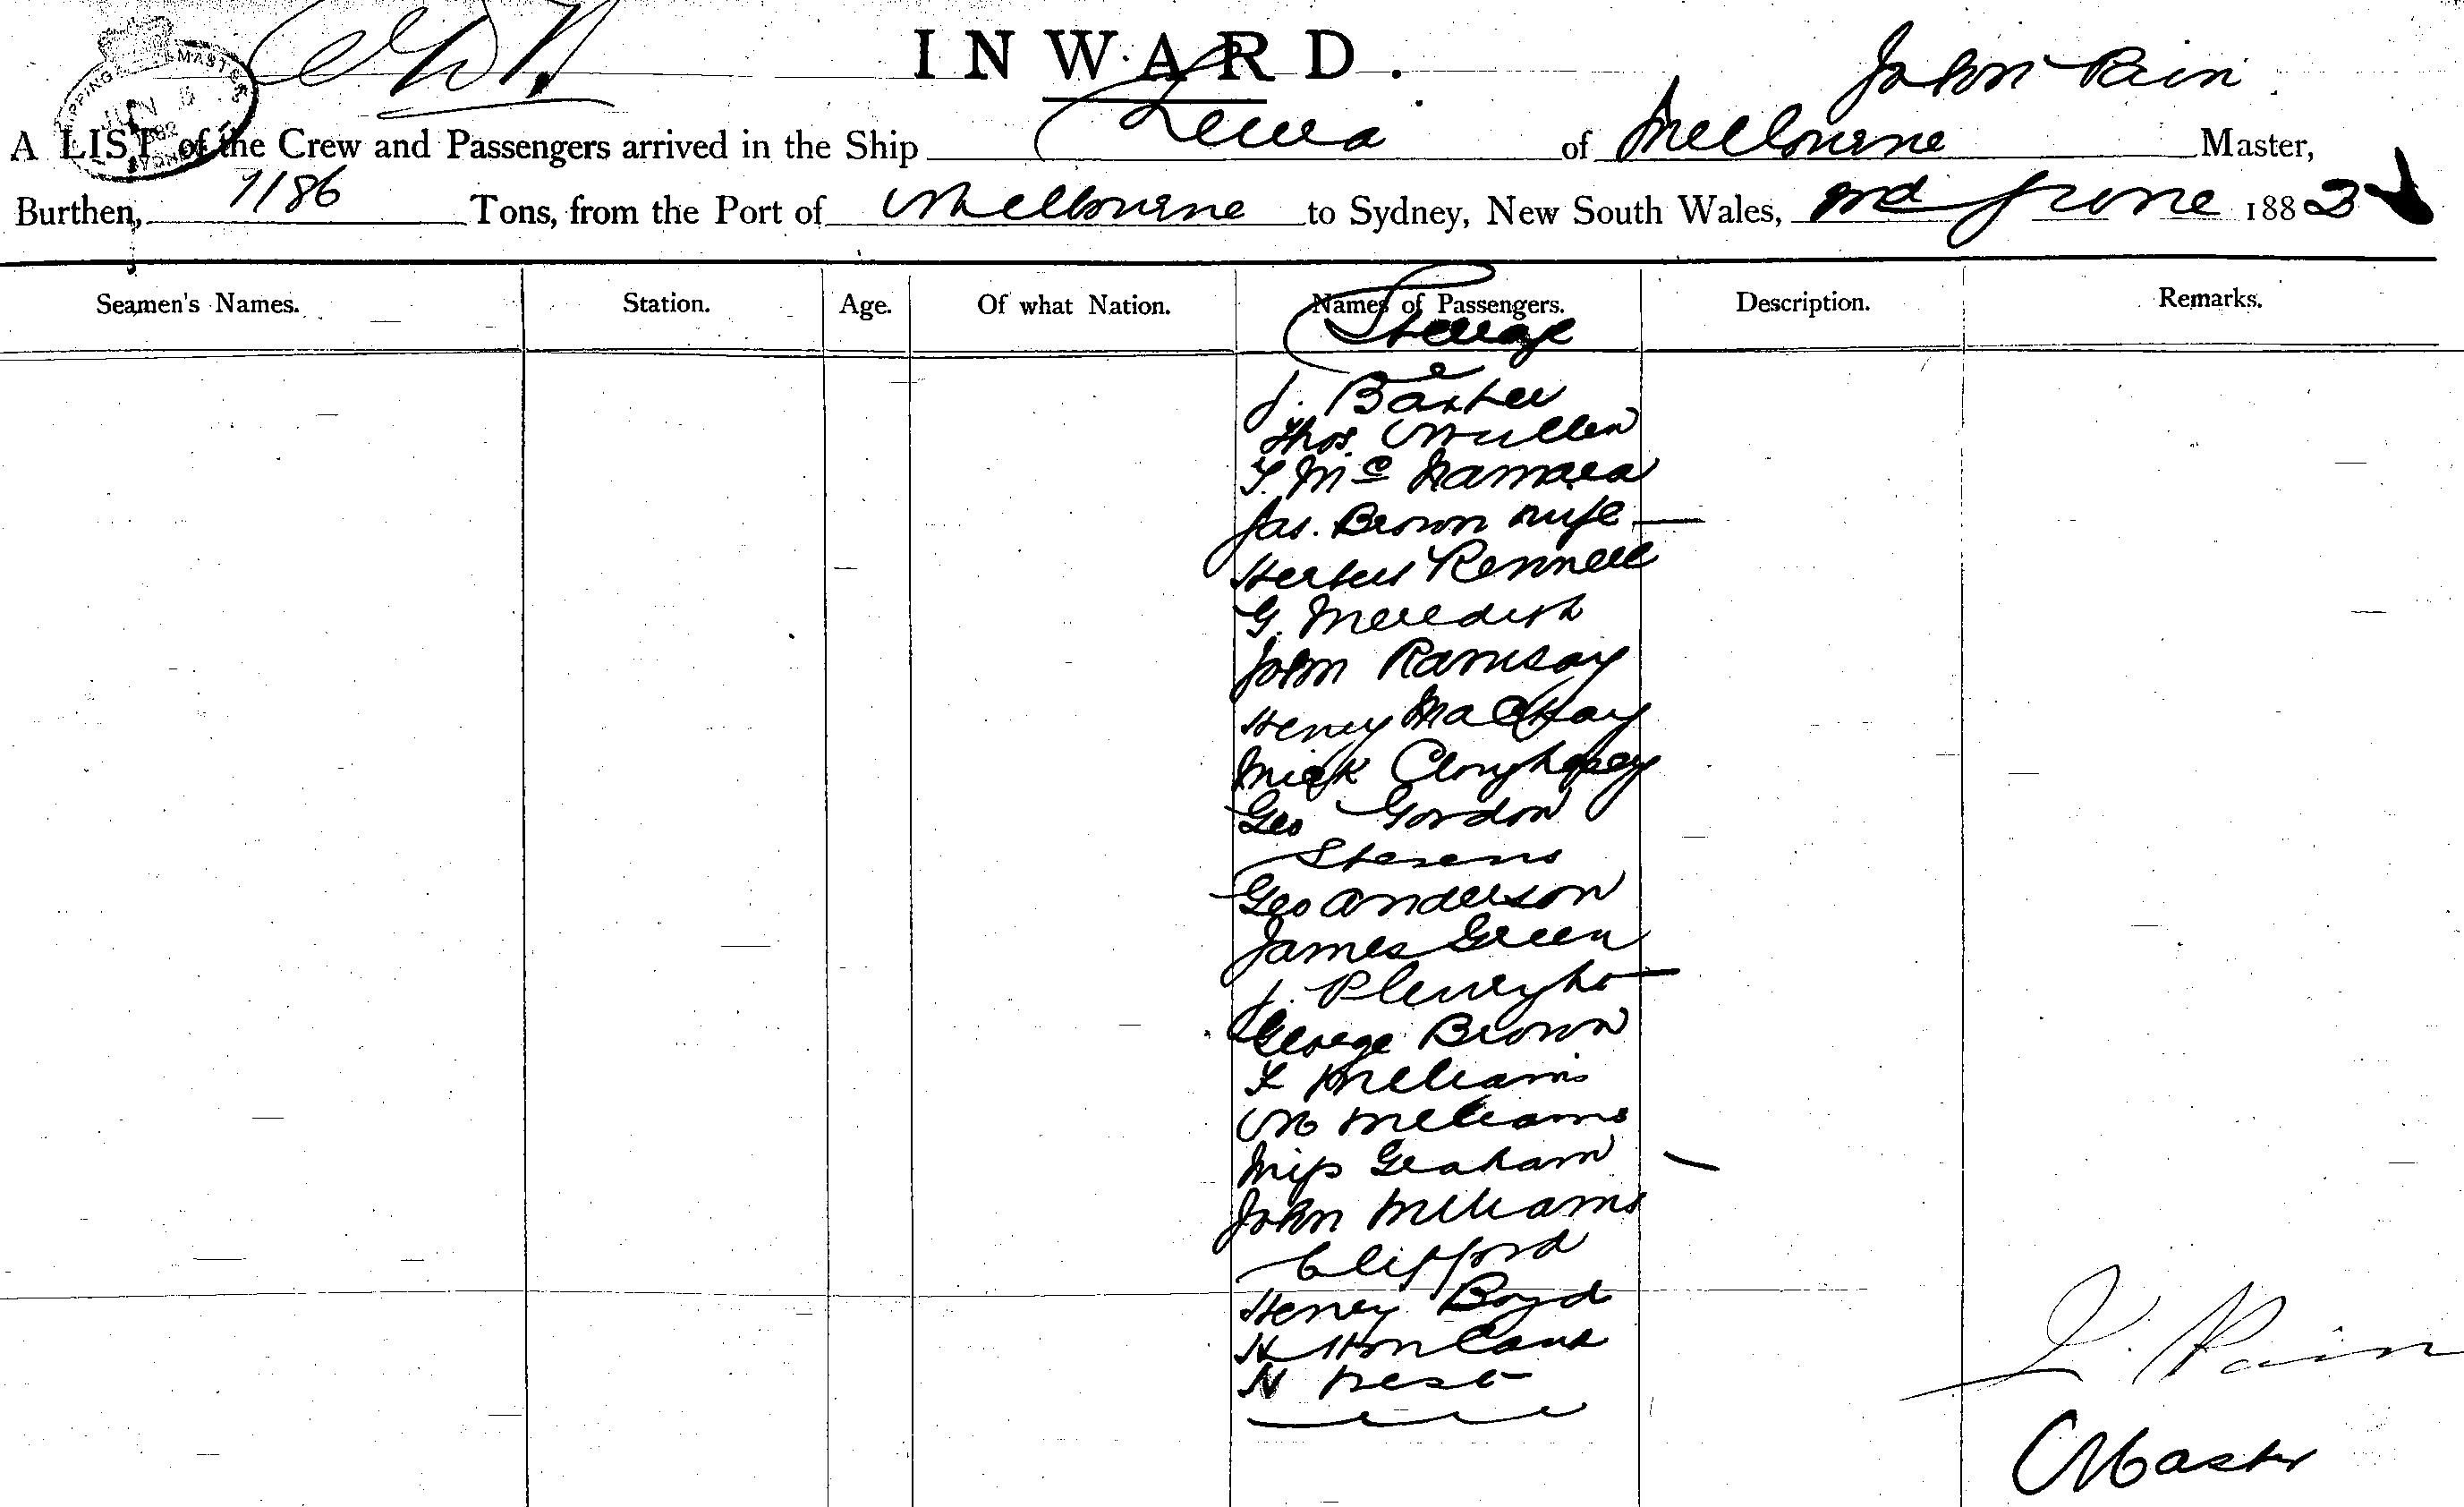 INWARD.
John Pain
A LIST of the Crew and Passengers arrived in the Ship of Melbourne Master,
Burthen, 1186 Tons, from the Port of Melbourne to Sydney, New South Wales, 2nd June 1882
Seamen's Names. Station. Age. Of what Nation. Names of Passengers. Description. Remarks.
Steerage
J. Baxter
Thos. Mullen
T. Mc Namara
Jas. Brown wife
Herbert Rennell
G. Meredith
John Ramsay
Henry MacKay
Mick Cloughessy
Geo Gordon
Stevens
Geo Anderson
James Green
J.
George Brown
F Williams
M Williams
Miss Graham
John Williams
Clifford
Henry Boyd
H
N West
J. Pain
Master